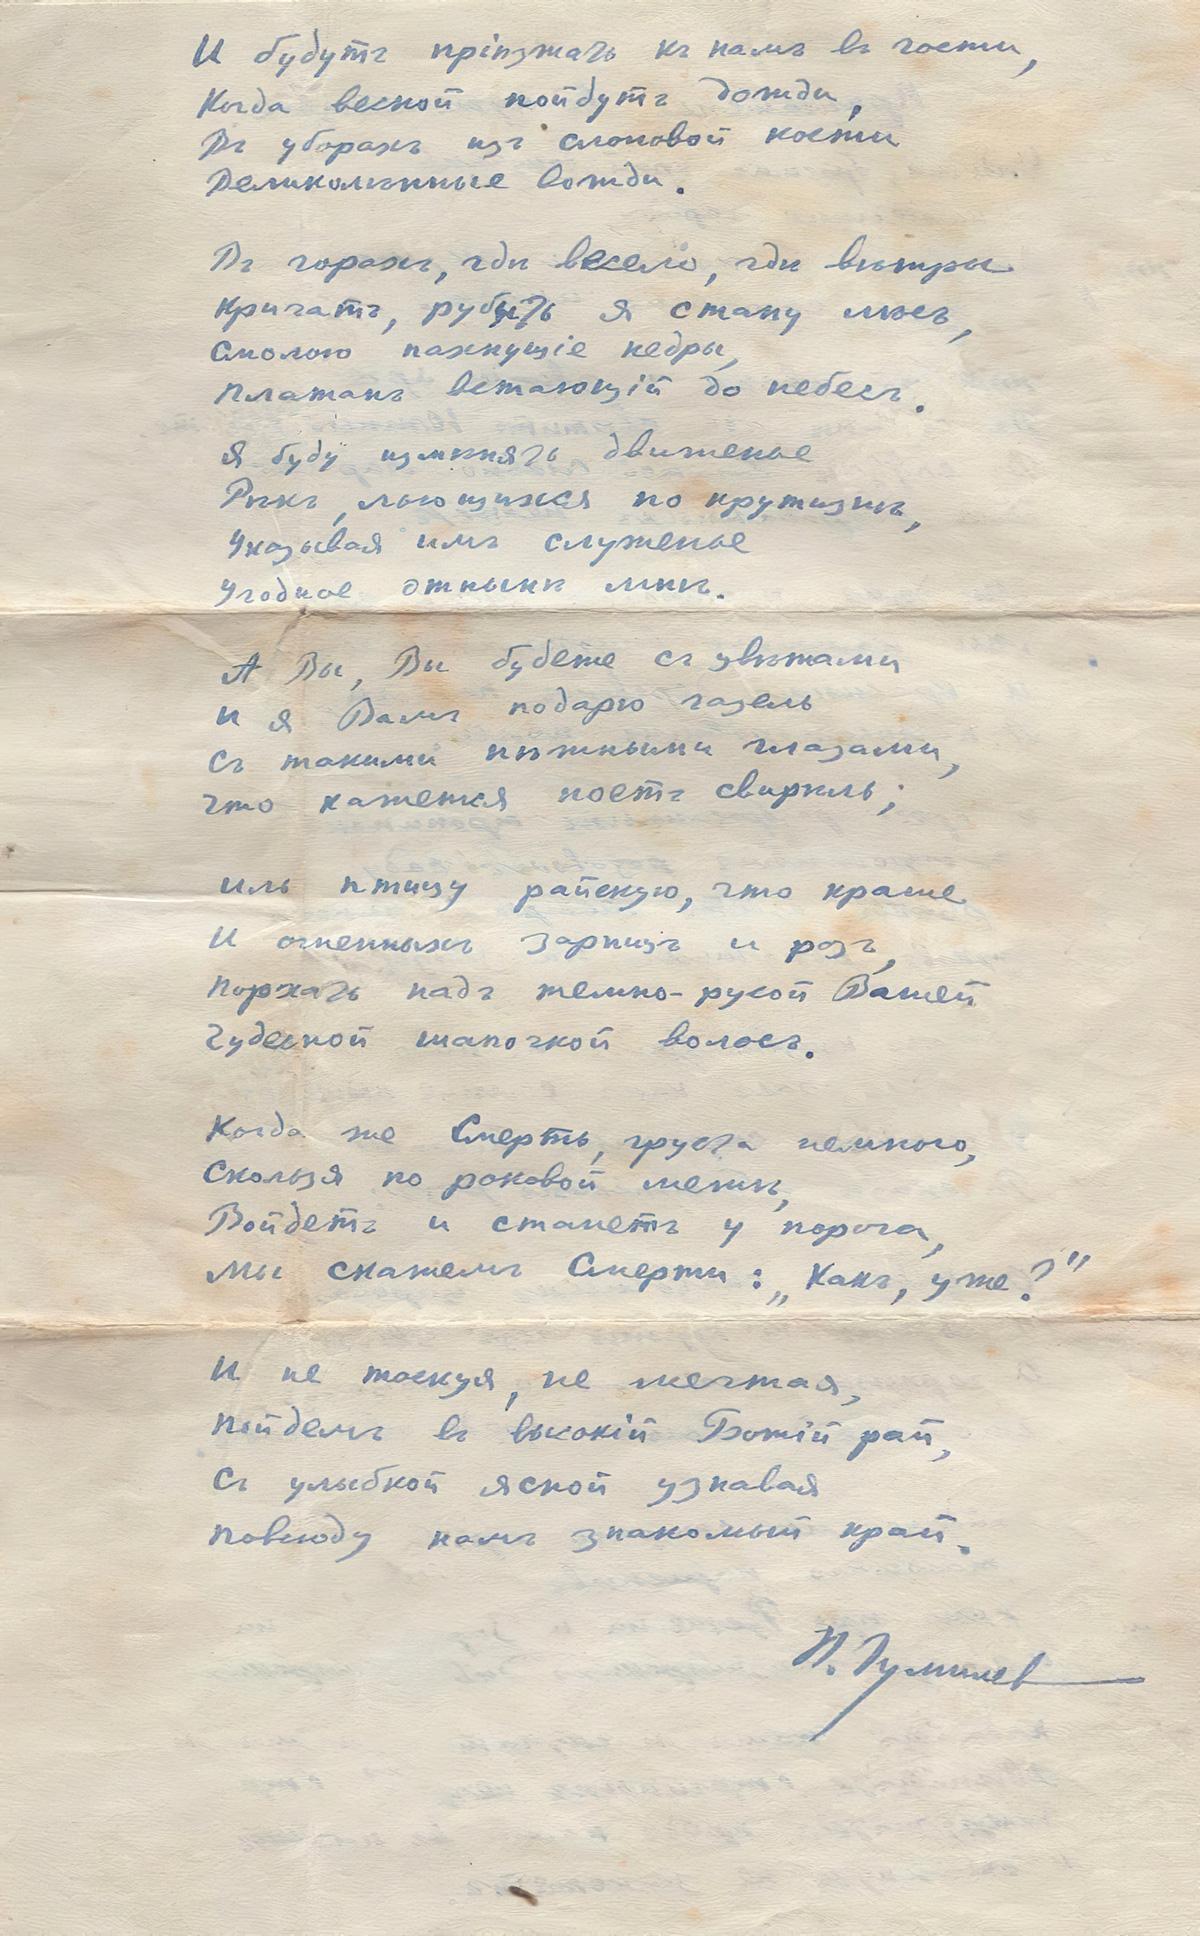 И будутъ пріѣзжать къ намъ въ гости,
Когда весной пойдутъ дожди,
Въ уборахъ изъ слоновой кости
Великолѣпные вожди.
Въ горахъ, гдѣ весело, гдѣ вѣтры
Кричатъ, рубить я стану лѣсъ,
Смолою пахнущіе кедры,
Платанъ встающій до небесъ.
Я буду измѣнять движенье
Рѣкъ, льющихся по крутизнѣ,
Указывая имъ служенье
Угодное отнынѣ мнѣ.
А Вы, Вы будете съ цвѣтами
И я Вамъ подарю газель
Съ такими нѣжными глазами,
Что кажется поетъ свирѣль;
Иль птицу райскую, что краше
И огненныхъ зарницъ и розъ,
Порхать надъ темно-русой Вашей
Чудесной шапочкой волосъ.
Когда же Смерть, грустя немного,
Скользя по роковой межѣ,
Войдетъ и станетъ у порога,
Мы скажемъ Смерти: „Какъ, уже?"
И не тоскуя, не мечтая,
Пойдемъ въ высокій Божій рай,
Съ улыбкой ясной узнавая
Повсюду намъ знакомый край.
Н. Гумилев